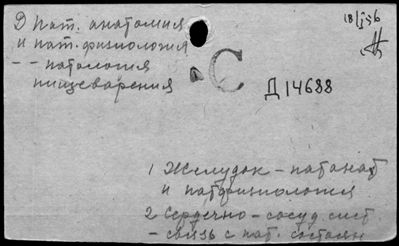 Д Пат. анатомия
и пат. физиология
-- патология
пищеварения
18/I 56
С
Д 14688
1 Желудок - патанат
и патфизиология
2 Сердечно - сосуд. сист.
- связь с пат. состоян